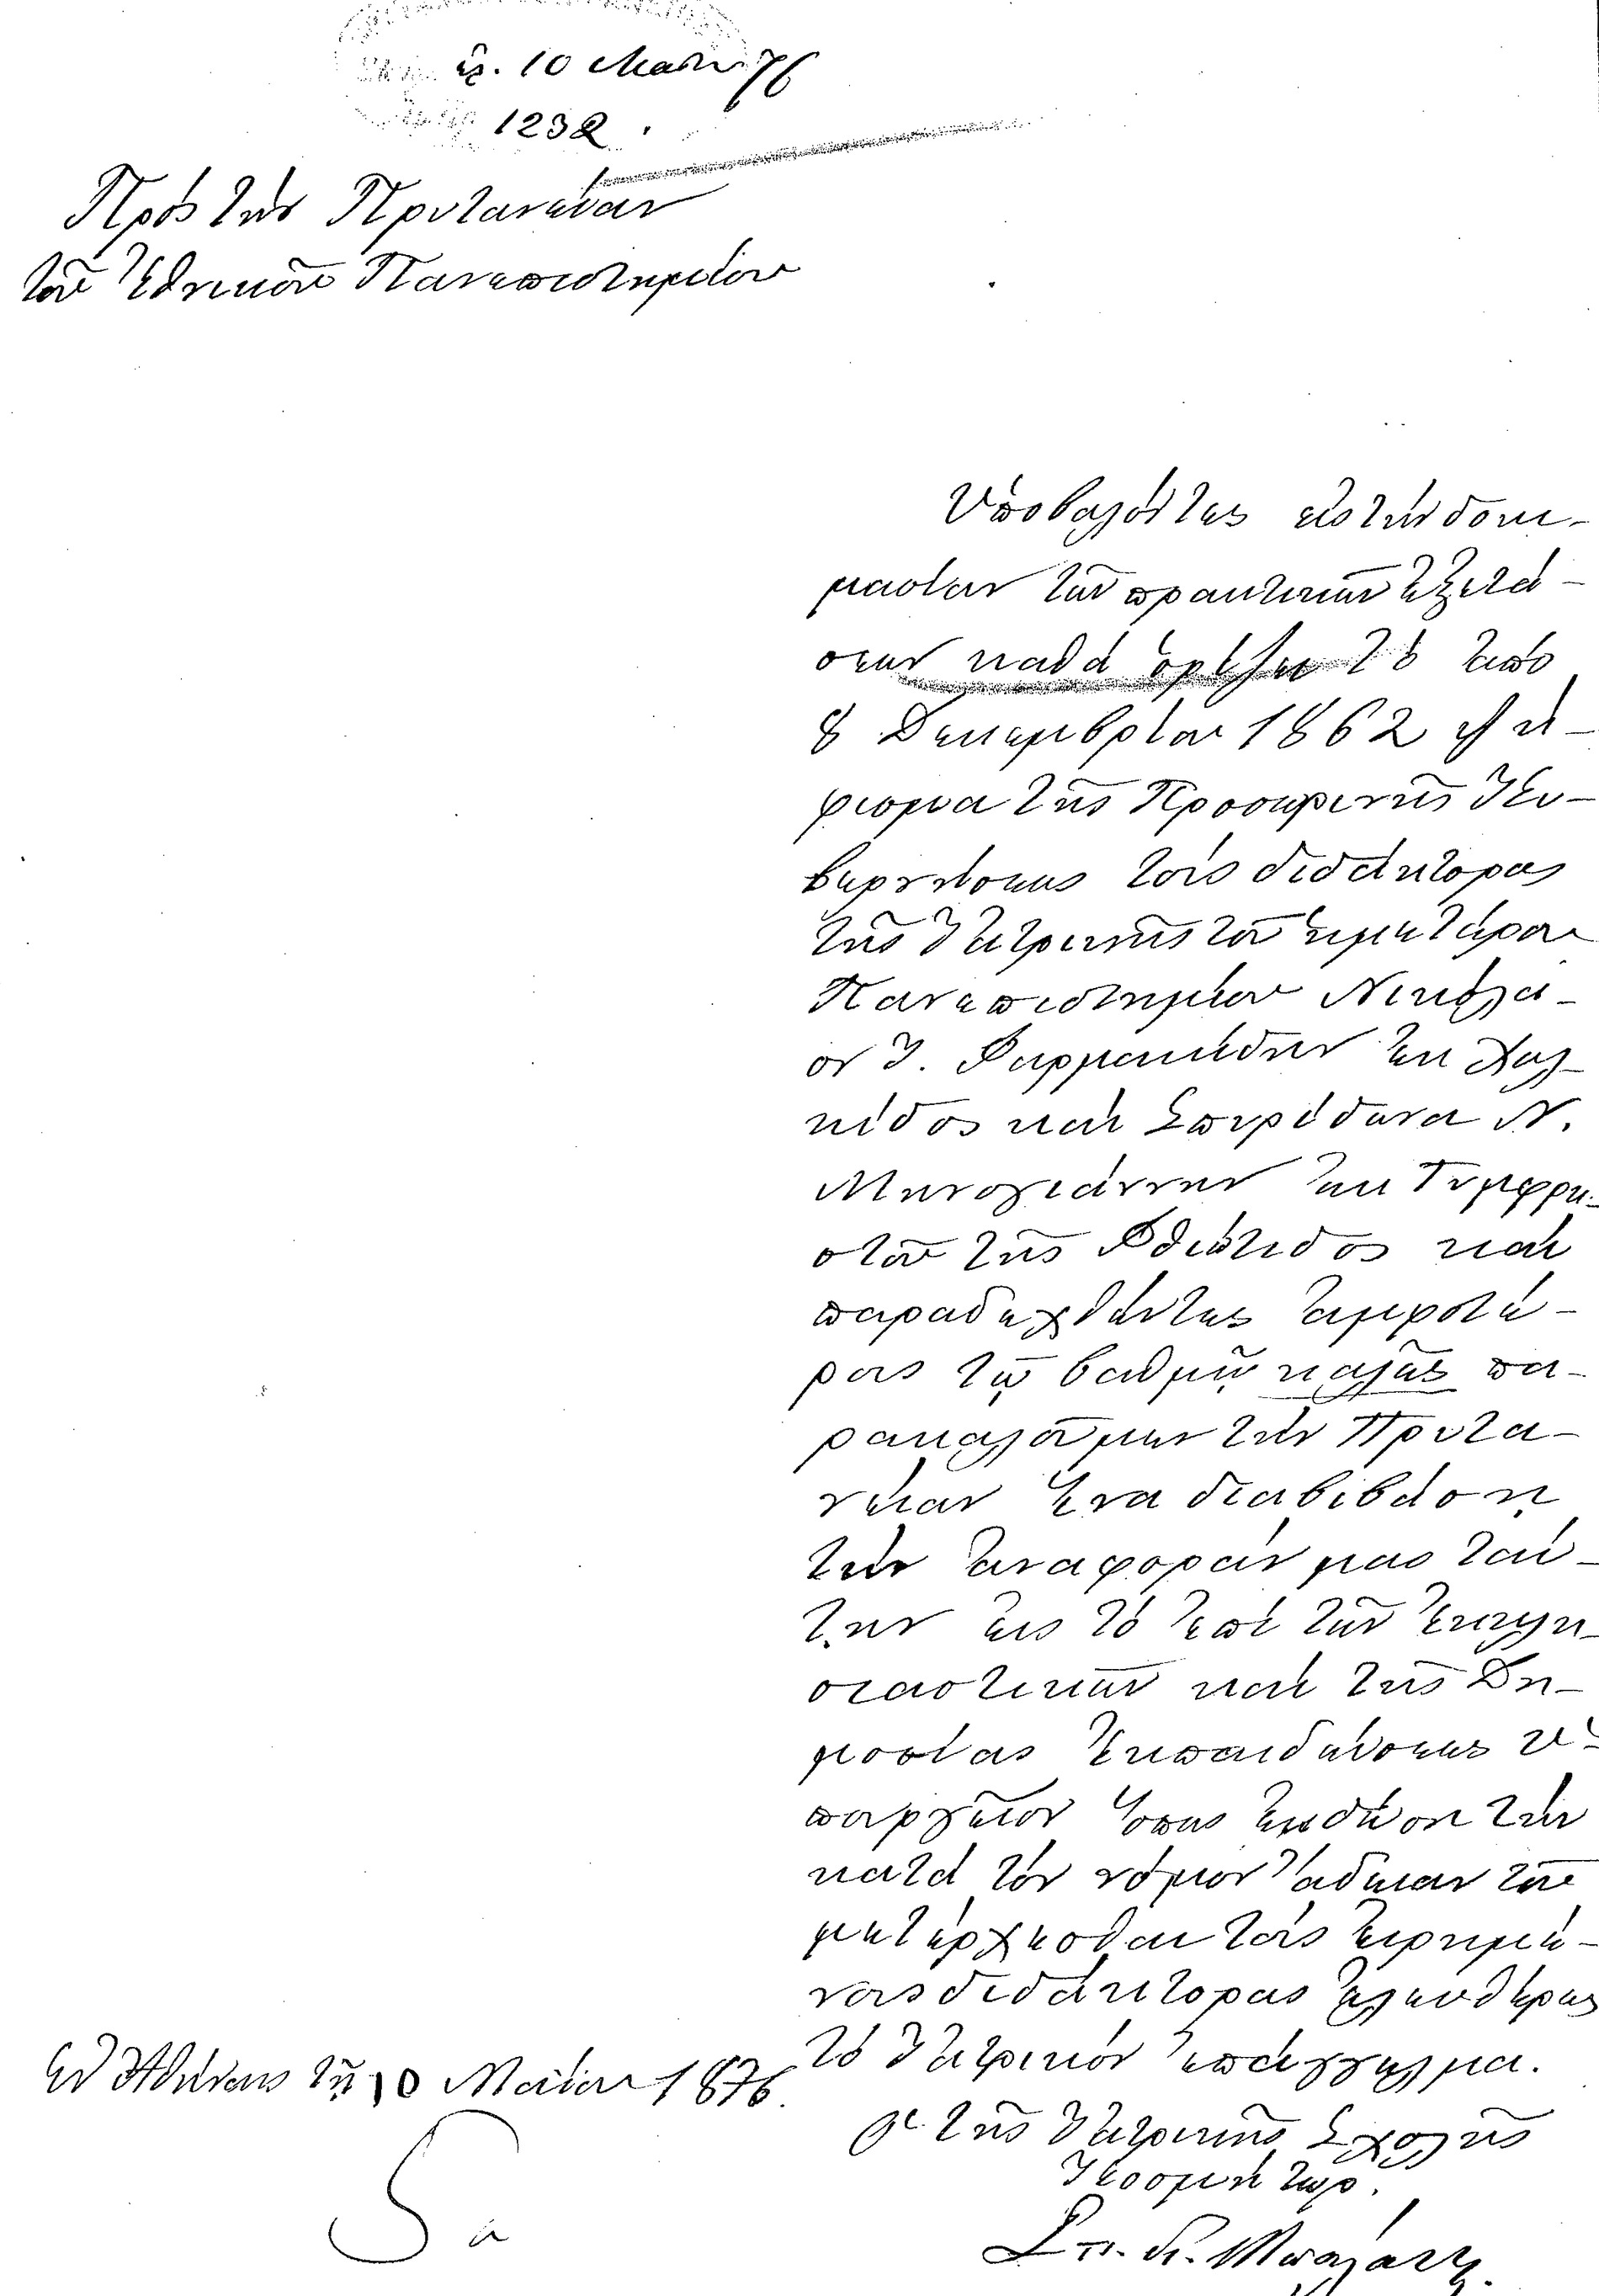 10 Μαΐου 76
1232
Πρὸς τὴν Πρυτανείαν
τοῦ Ἐθνικοῦ Πανεπιστημίου
Ὑποβαλόντες εἰς τὴν δοκι-
μασίαν τῶν πρακτικῶν ἐξετά-
σεων καθ' ἃ ὁρίζει τὸ ἀπὸ
8 Δεκεμβρίου 1862 ψή-
φισμα τῆς Προσωρινῆς Κυ-
βερνήσεως τοὺς διδάκτορας
τῆς Ἰατρικῆς τοῦ ἡμετέρου
Πανεπιστημίου Νικόλα-
ον Ἰ. Φαρμακίδην ἐκ Χαλ-
κίδος καὶ Σπυρίδωνα Ν.
ἐκ Τυμφρη-
στοῦ τῆς Φθιώτιδος καὶ
παραδεχθέντες ἀμφοτέ-
ρους τῷ βαθμῷ καλῶς πα-
ρακαλοῦμεν τὴν Πρυτα-
νείαν ἵνα διαβιβάσῃ
τὴν ἀναφοράν μας ταύ-
την εἰς τὸ ἐπὶ τῶν Ἐκκλη-
σιαστικῶν καὶ τῆς Δη-
μοσίας Ἐκπαιδεύσεως Ὑ-
πουργεῖον ὅπως ἐκδώσῃ τὴν
κατὰ τὸν νόμον ἄδειαν τοῦ
μετέρχεσθαι τοὺς εἰρημέ-
νους διδάκτορας ἐλευθέρως
τὸ Ἰατρικὸν ἐπάγγελμα.
Ἐν Ἀθήναις τῇ 10 Μαΐου 1876.
Ὁ τῆς Ἰατρικῆς Σχολῆς
Κοσμήτωρ.